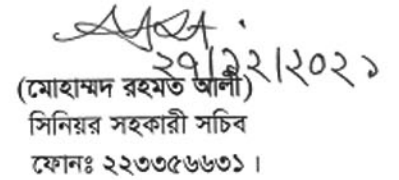 ২৭/১২/২০২১
(মোহাম্মদ রহমত আলী)
সিনিয়র সহকারী সচিব
ফোনঃ ২২৩৩৫৬৬৩১ ।